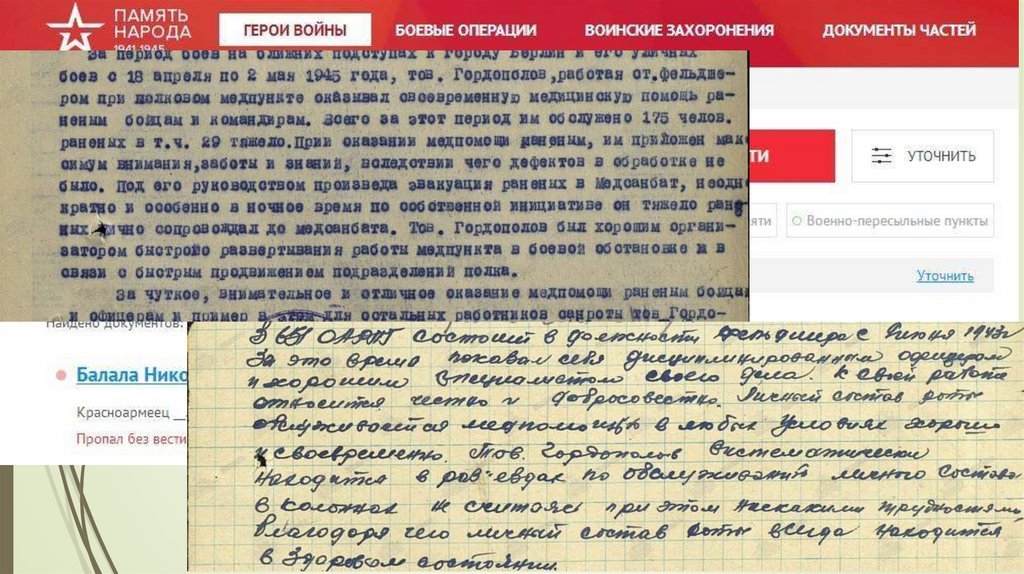 ПАМЯТЬ
НАРОДА
1941-1945
ГЕРОИ ВОЙНЫ
БОЕВЫЕ ОПЕРАЦИИ
ВОИНСКИЕ ЗАХОРОНЕНИЯ
ДОКУМЕНТЫ ЧАСТЕЙ
За период боев на ближних подступах к городу Берлин и его уличных
боев с 18 апреля по 2 мая 1945 года, тов. Гордополов,работая ст.фельдше-
ром при полковом медпункте оказывал своевременную медицинскую помощь ра-
неным бойцам и командирам. Всего за этот период им обслужено 175 челов.
раненых в т.ч. 29 тяжело.При оказании медпомощи раненым, им приложен мак
симум внимания,заботы и знаний, вследствии чего дефектов в обработке не
было. Под его руководством произведа эвакуация раненых в Медсанбат, неодн
кратно и особенно в ночное время по собственной инициативе он тяжело ране
ных лично сопровождал до медсанбата. Тов. Гордополов был хорошим органи-
затором быстройо развертывания работы медпункта в боевой обстановке и в
связи с быстрым продвижением подразделений полка.
За чуткое, внимательное и отличное оказание медпомощи раненым бойцам
и офицерам и пример в этом для остальных работников санроты тов Гордо-
ТИ
УТОЧНИТЬ
яти
Военно-пересыльные пункты
Уточнить
Найдено документов:
Балала Нико
Красноармеец __
Пропал без вести
В ОАТП состоит в должности фельдшера с июня 1943г
За это время показал себя дисциплинированным офицером
и хорошим специалистом своего дела. К своей работе
относится честно и добросовестно. Личный состав роты
обслуживается медпомощью в любых условиях хорошо
и своевременно. Тов. Гордополов систематически
находится в раз"ездах по обслуживанию личного состава
в колоннах не считаясь при этом ни с какими трудностями,
благодаря чего личный состав роты всегда находится
в здоровом состоянии.